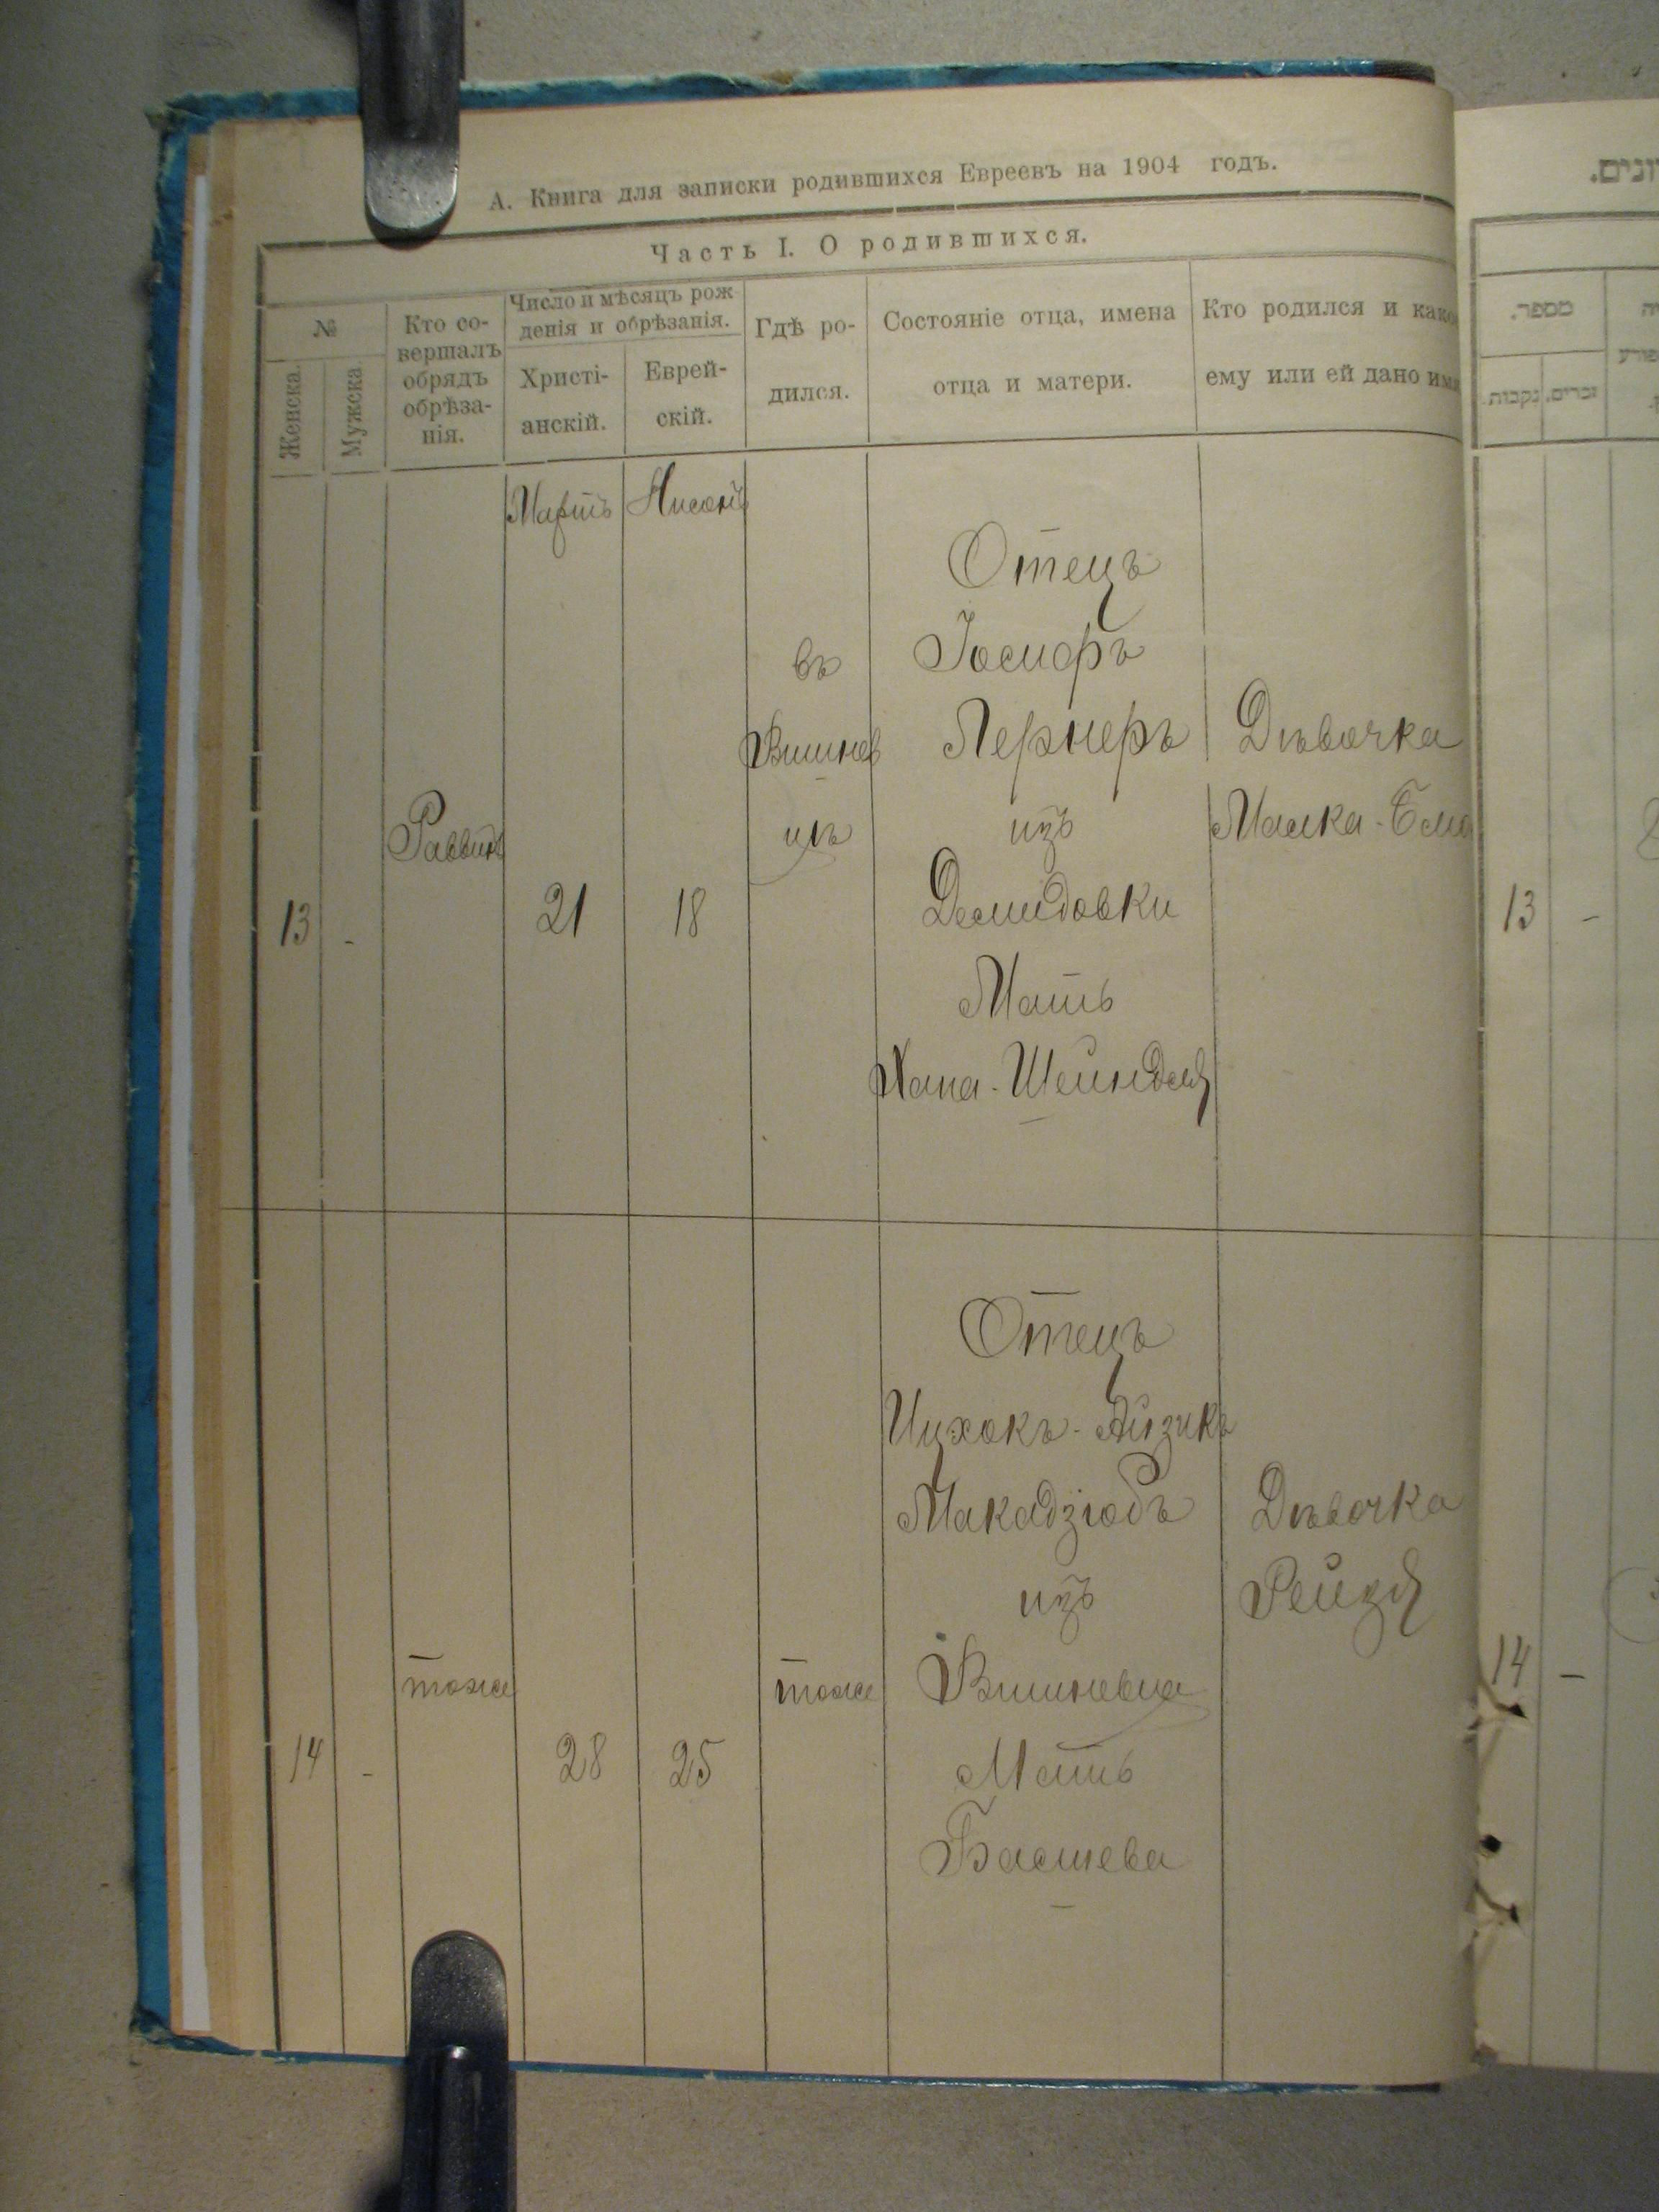 А. Книга для записки родившихся Евреевъ на 1904 годъ.
Часть I. О родившихся.
№
Женска.
Мужска.
Кто со-
вершалъ
обрядъ
обрѣза-
нія.
Число и мѣсяцъ рож
денія и обрѣзанія.
Христі-
анскій.
Еврей-
скій.
Гдѣ ро-
дился.
Состояніе отца, имена
отца и матери.
Кто родился и како
ему или ей дано имя
Мартъ
Нисонъ
13
-
Раввинъ
21
18
въ
Вишнев
цѣ
Отецъ
Іосифъ
Лернеръ
изъ
Демидовки
Мать
Хана-Шейндля
Дѣвочка
Малка-
14
-
тоже
28
25
тоже
Отецъ
Ицхокъ-Айзикъ
Макадзюбъ
изъ
Вишневца
Мать
Басшева
Дѣвочка
Рейзя
מספר.
נקבות.
זכרים.
13
-
14
-